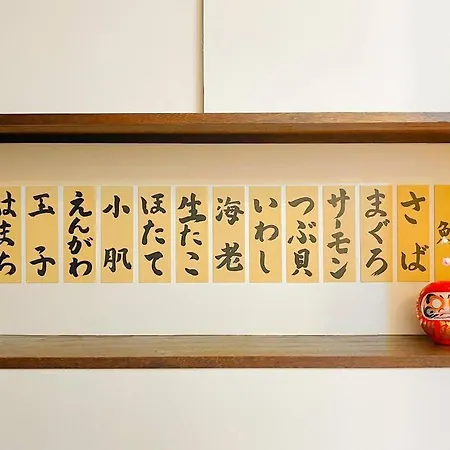 さば
まぐろ
サーモン
つぶ貝
いわし
海老
生たこ
ほたて
小肌
えんがわ
玉子
はまち